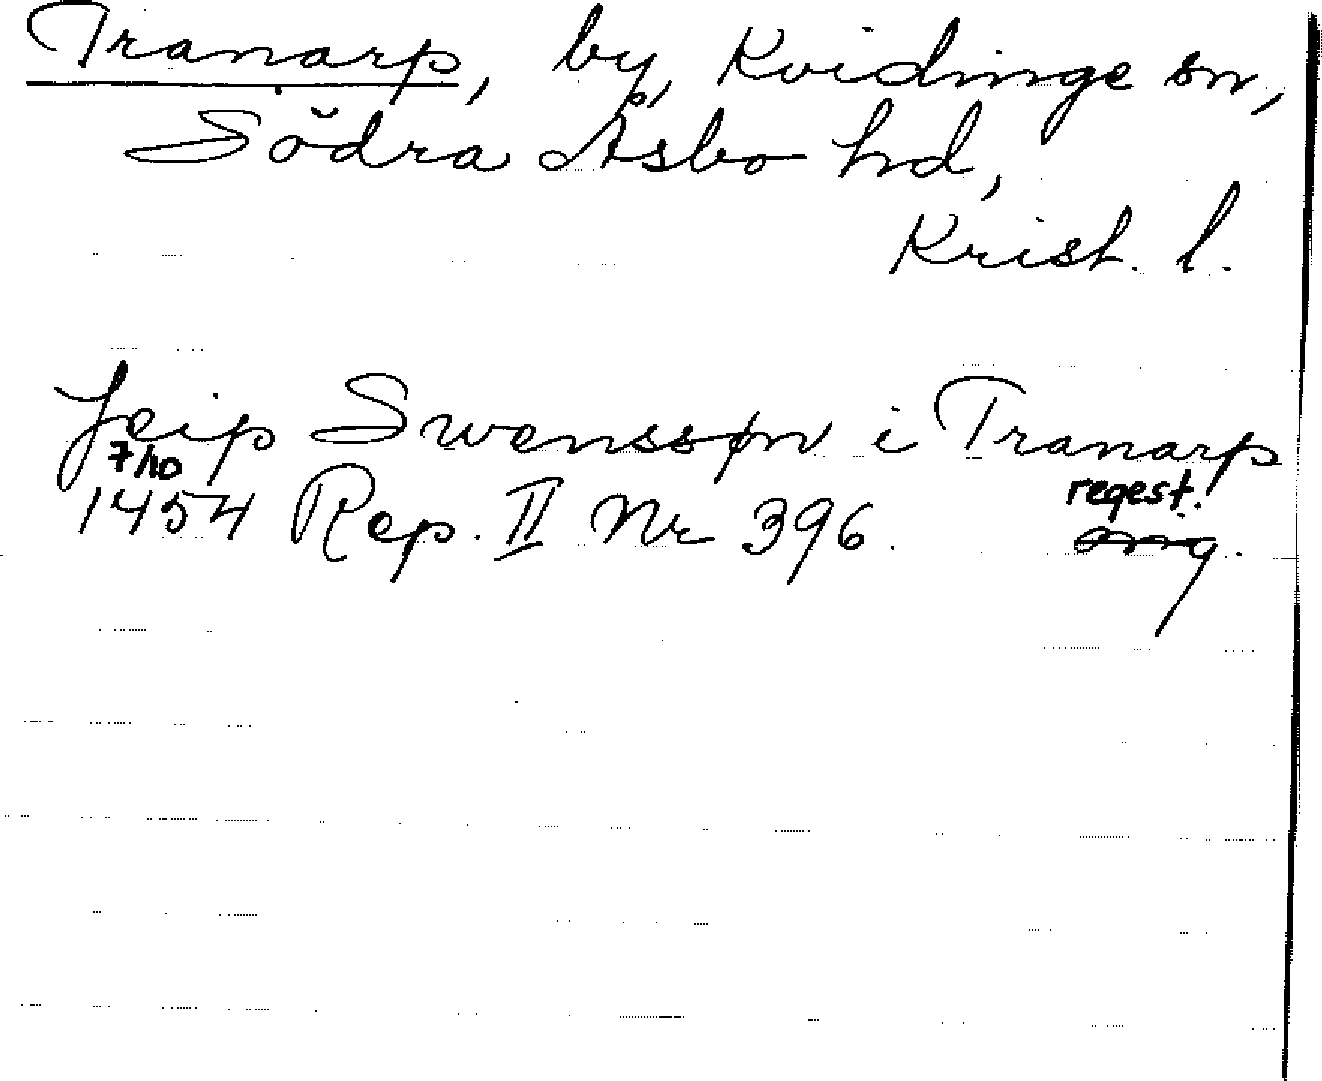 Tranarp, by, Kvidinge sn,
Södra Åsbo hd,
Krist. l.
Jeip Swenssøn i Tranarp
7/10
1454 Rep. II Nr 396. regest.